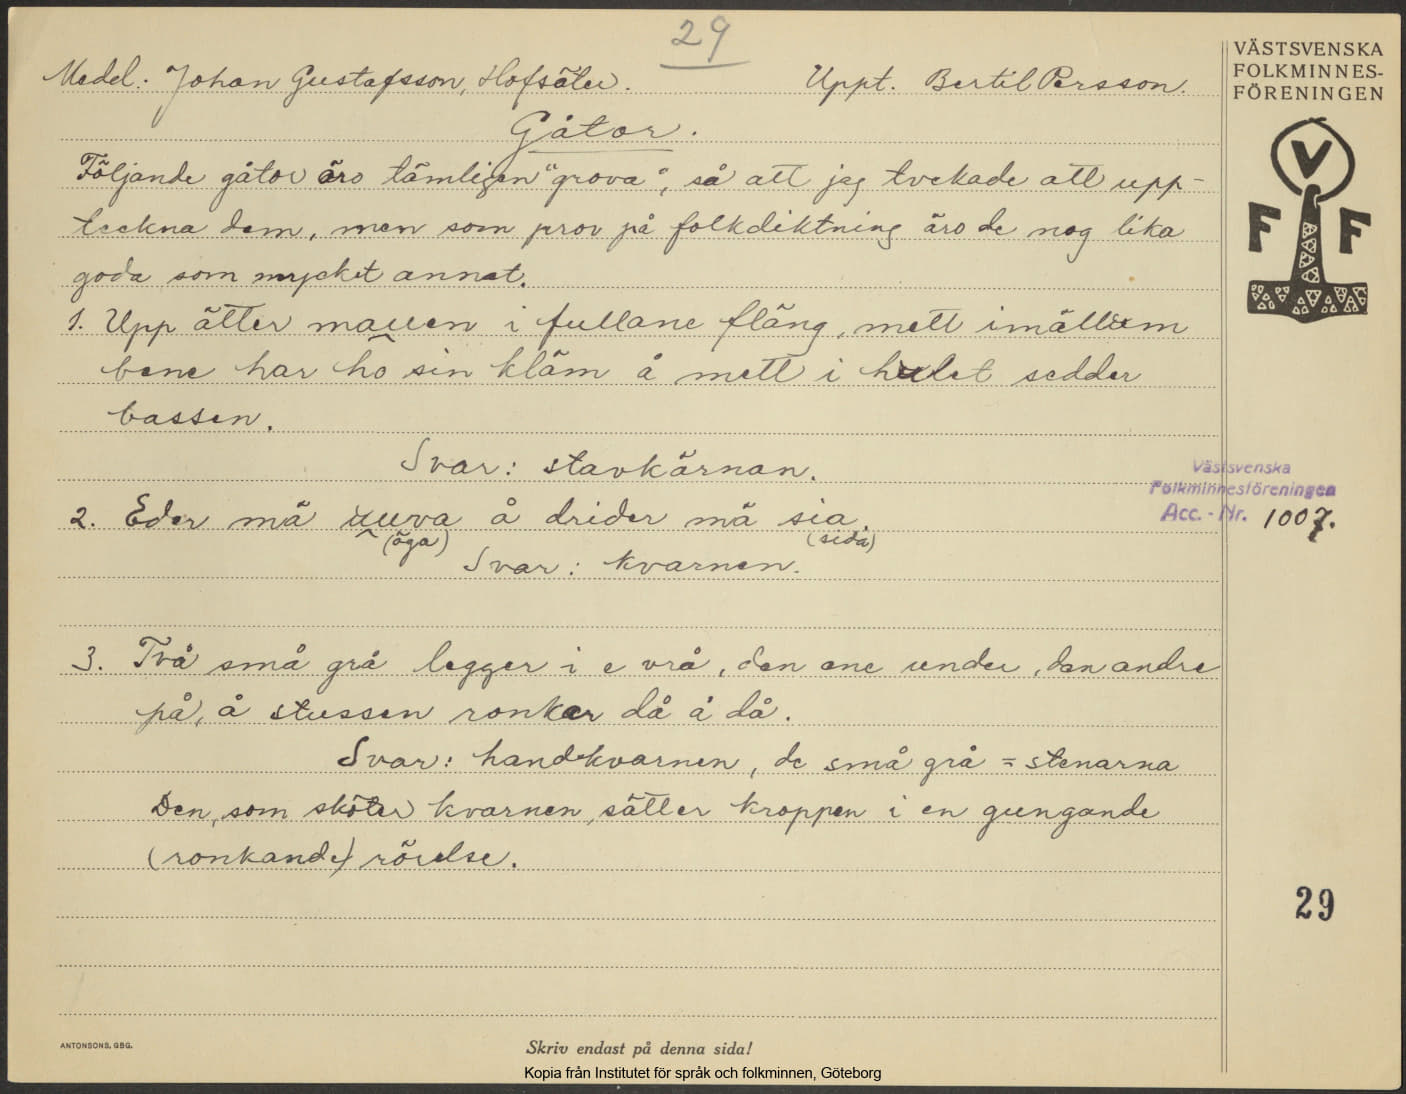 29
Medel. Johan Gustafsson, Hofsäter. Uppt. Bertil Persson.
Gåtor.
Följande gåtor äro tämligen "grova", så att jag tvekade att upp-
teckna dem, men som prov på folkdiktning äro de nog lika
goda som mycket annat.
1. Upp ätter mauen i fullane fläng, mett imällum
bene har ho sin kläm å mett i hulet sedder
bassen.
Svar: stavkärnan.
2. Eder mä uuva å drider mä sia.
(öga) (sida)
Svar: kvarnen.
3. Två små grå legger i e vrå, den ene under, den andre
på, å stussen ronkar då å då.
Svar: handkvarnen, de små grå = stenarna
Den, som sköter kvarnen, sätter kroppen i en gungande
(ronkande) rörelse.
VÄSTSVENSKA
FOLKMINNES-
FÖRENINGEN
V
F F
Västsvenska
Folkminnesföreningen
Acc. - Nr. 1007.
29
ANTONSONS, GBG.
Skriv endast på denna sida!
Kopia från Institutet för språk och folkminnen, Göteborg